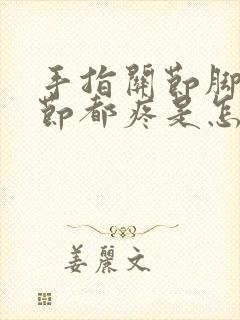 手指關節腳
節都疼是怎
姜麗文